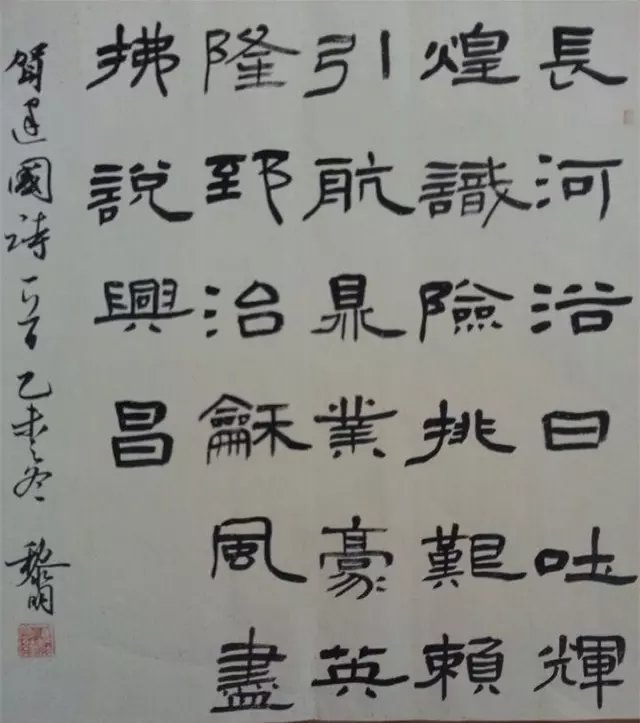 長河浴日吐輝
煌識險挑艱賴
引航鼎業豪英
隆郅治龢風盡
拂說興昌
賀建國詩一首 乙未之冬 黎明